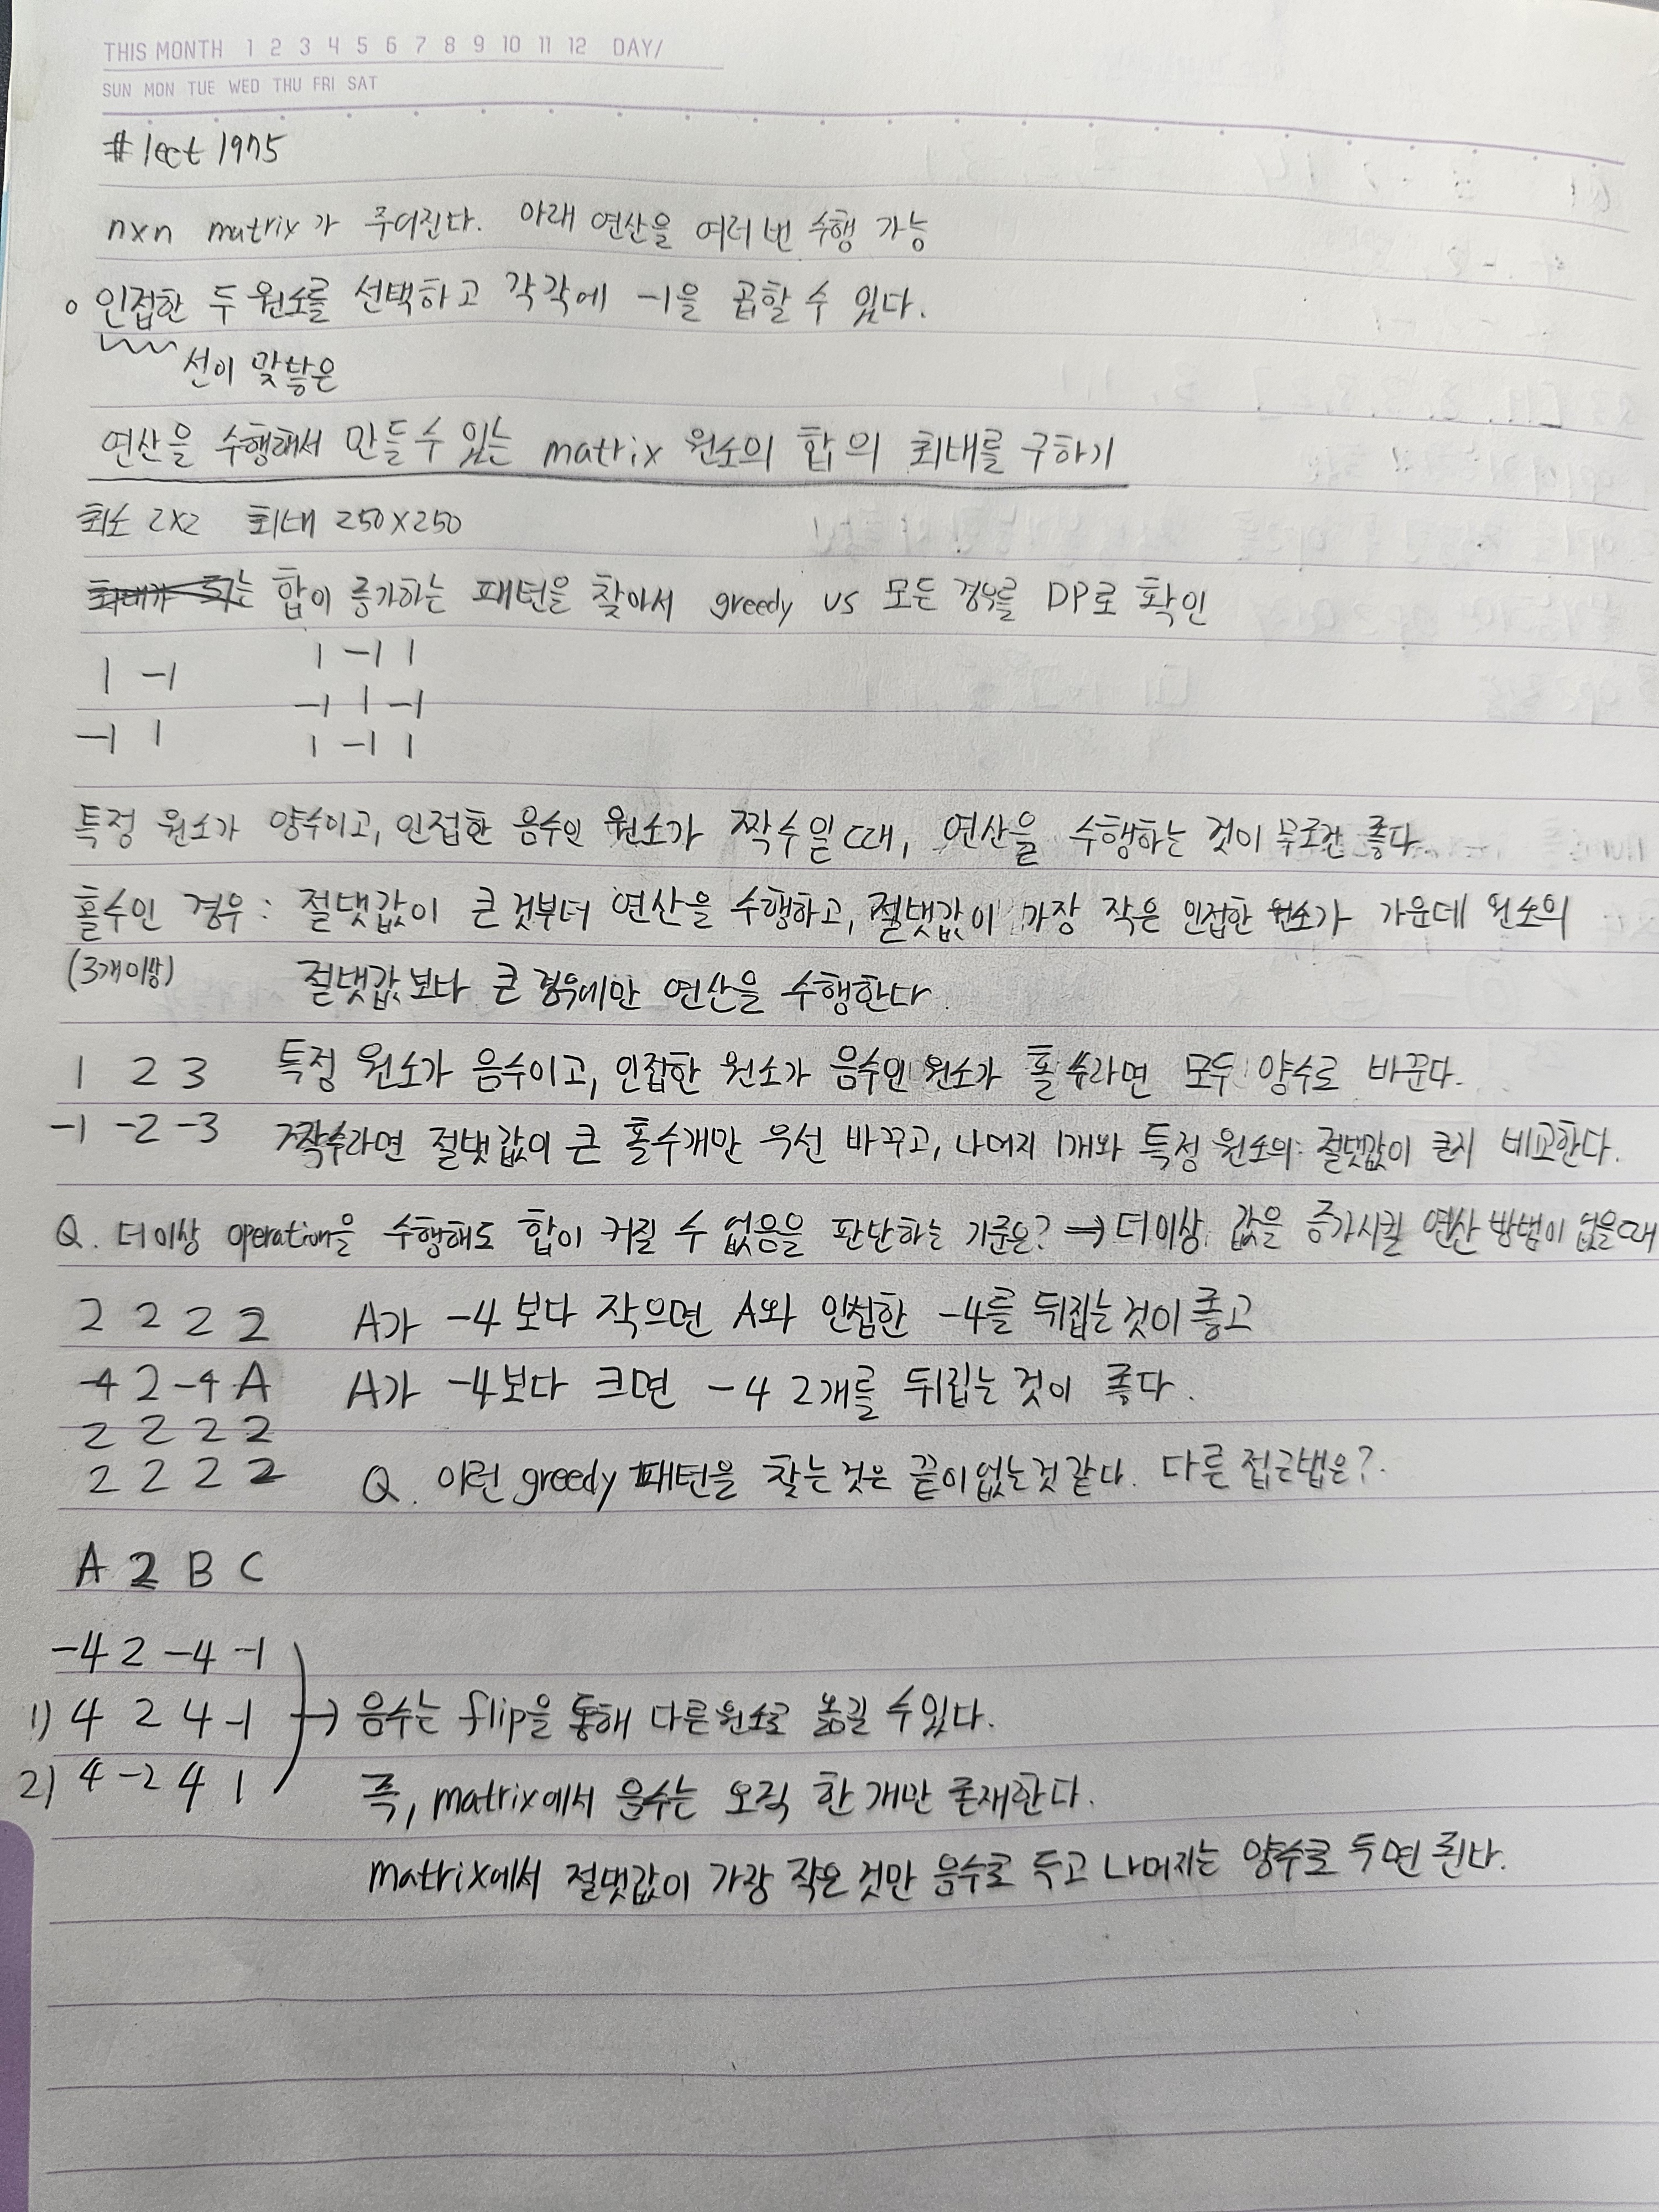 THIS MONTH 1 2 3 4 5 6 7 8 9 10 11 12 DAY/
SUN MON TUE WED THU FRI SAT
# lect 1975
n×n matrix가 주어진다. 아래 연산을 여러 번 수행 가능
o 인접한 두 원소를 선택하고 각각에 -1을 곱할 수 있다.
선이 맞닿은
연산을 수행해서 만들 수 있는 matrix 원소의 합의 최대를 구하기
최소 2×2 최대 250×250
합이 증가하는 패턴을 찾아서 greedy vs 모든 경우를 DP로 확인
1 -1
-1 1
1 -1 1
-1 1 -1
1 -1 1
특정 원소가 양수이고, 인접한 음수인 원소가 짝수일 때, 연산을 수행하는 것이 무조건 좋다
홀수인 경우: 절댓값이 큰 것부터 연산을 수행하고, 절댓값이 가장 작은 인접한 원소가 가운데 원소의
(3개이상) 절댓값보다 큰 경우에만 연산을 수행한다
1 2 3 특정 원소가 음수이고, 인접한 원소가 음수인 원소가 홀수라면 모두 양수로 바꾼다.
-1 -2 -3 짝수라면 절댓값이 큰 홀수개만 우선 바꾸고, 나머지 1개와 특정 원소의 절댓값이 큰지 비교한다.
Q. 더이상 operation을 수행해도 합이 커질 수 없음을 판단하는 기준은? → 더이상 값을 증가시킬 연산 방법이 없을때
2 2 2 2 A가 -4 보다 작으면 A와 인접한 -4를 뒤집는 것이 좋고
-4 2 -4 A A가 -4보다 크면 -4 2개를 뒤집는 것이 좋다.
2 2 2 2
2 2 2 2 Q. 이런 greedy 패턴을 찾는 것은 끝이 없는 것 같다. 다른 접근법은?
A 2 B C
-4 2 -4 -1
1) 4 2 4 -1 → 음수는 flip을 통해 다른 원소로 옮길 수 있다.
2) 4 -2 4 1 즉, matrix에서 음수는 오직 한 개만 존재한다.
matrix에서 절댓값이 가장 작은 것만 음수로 두고 나머지는 양수로 두면 된다.